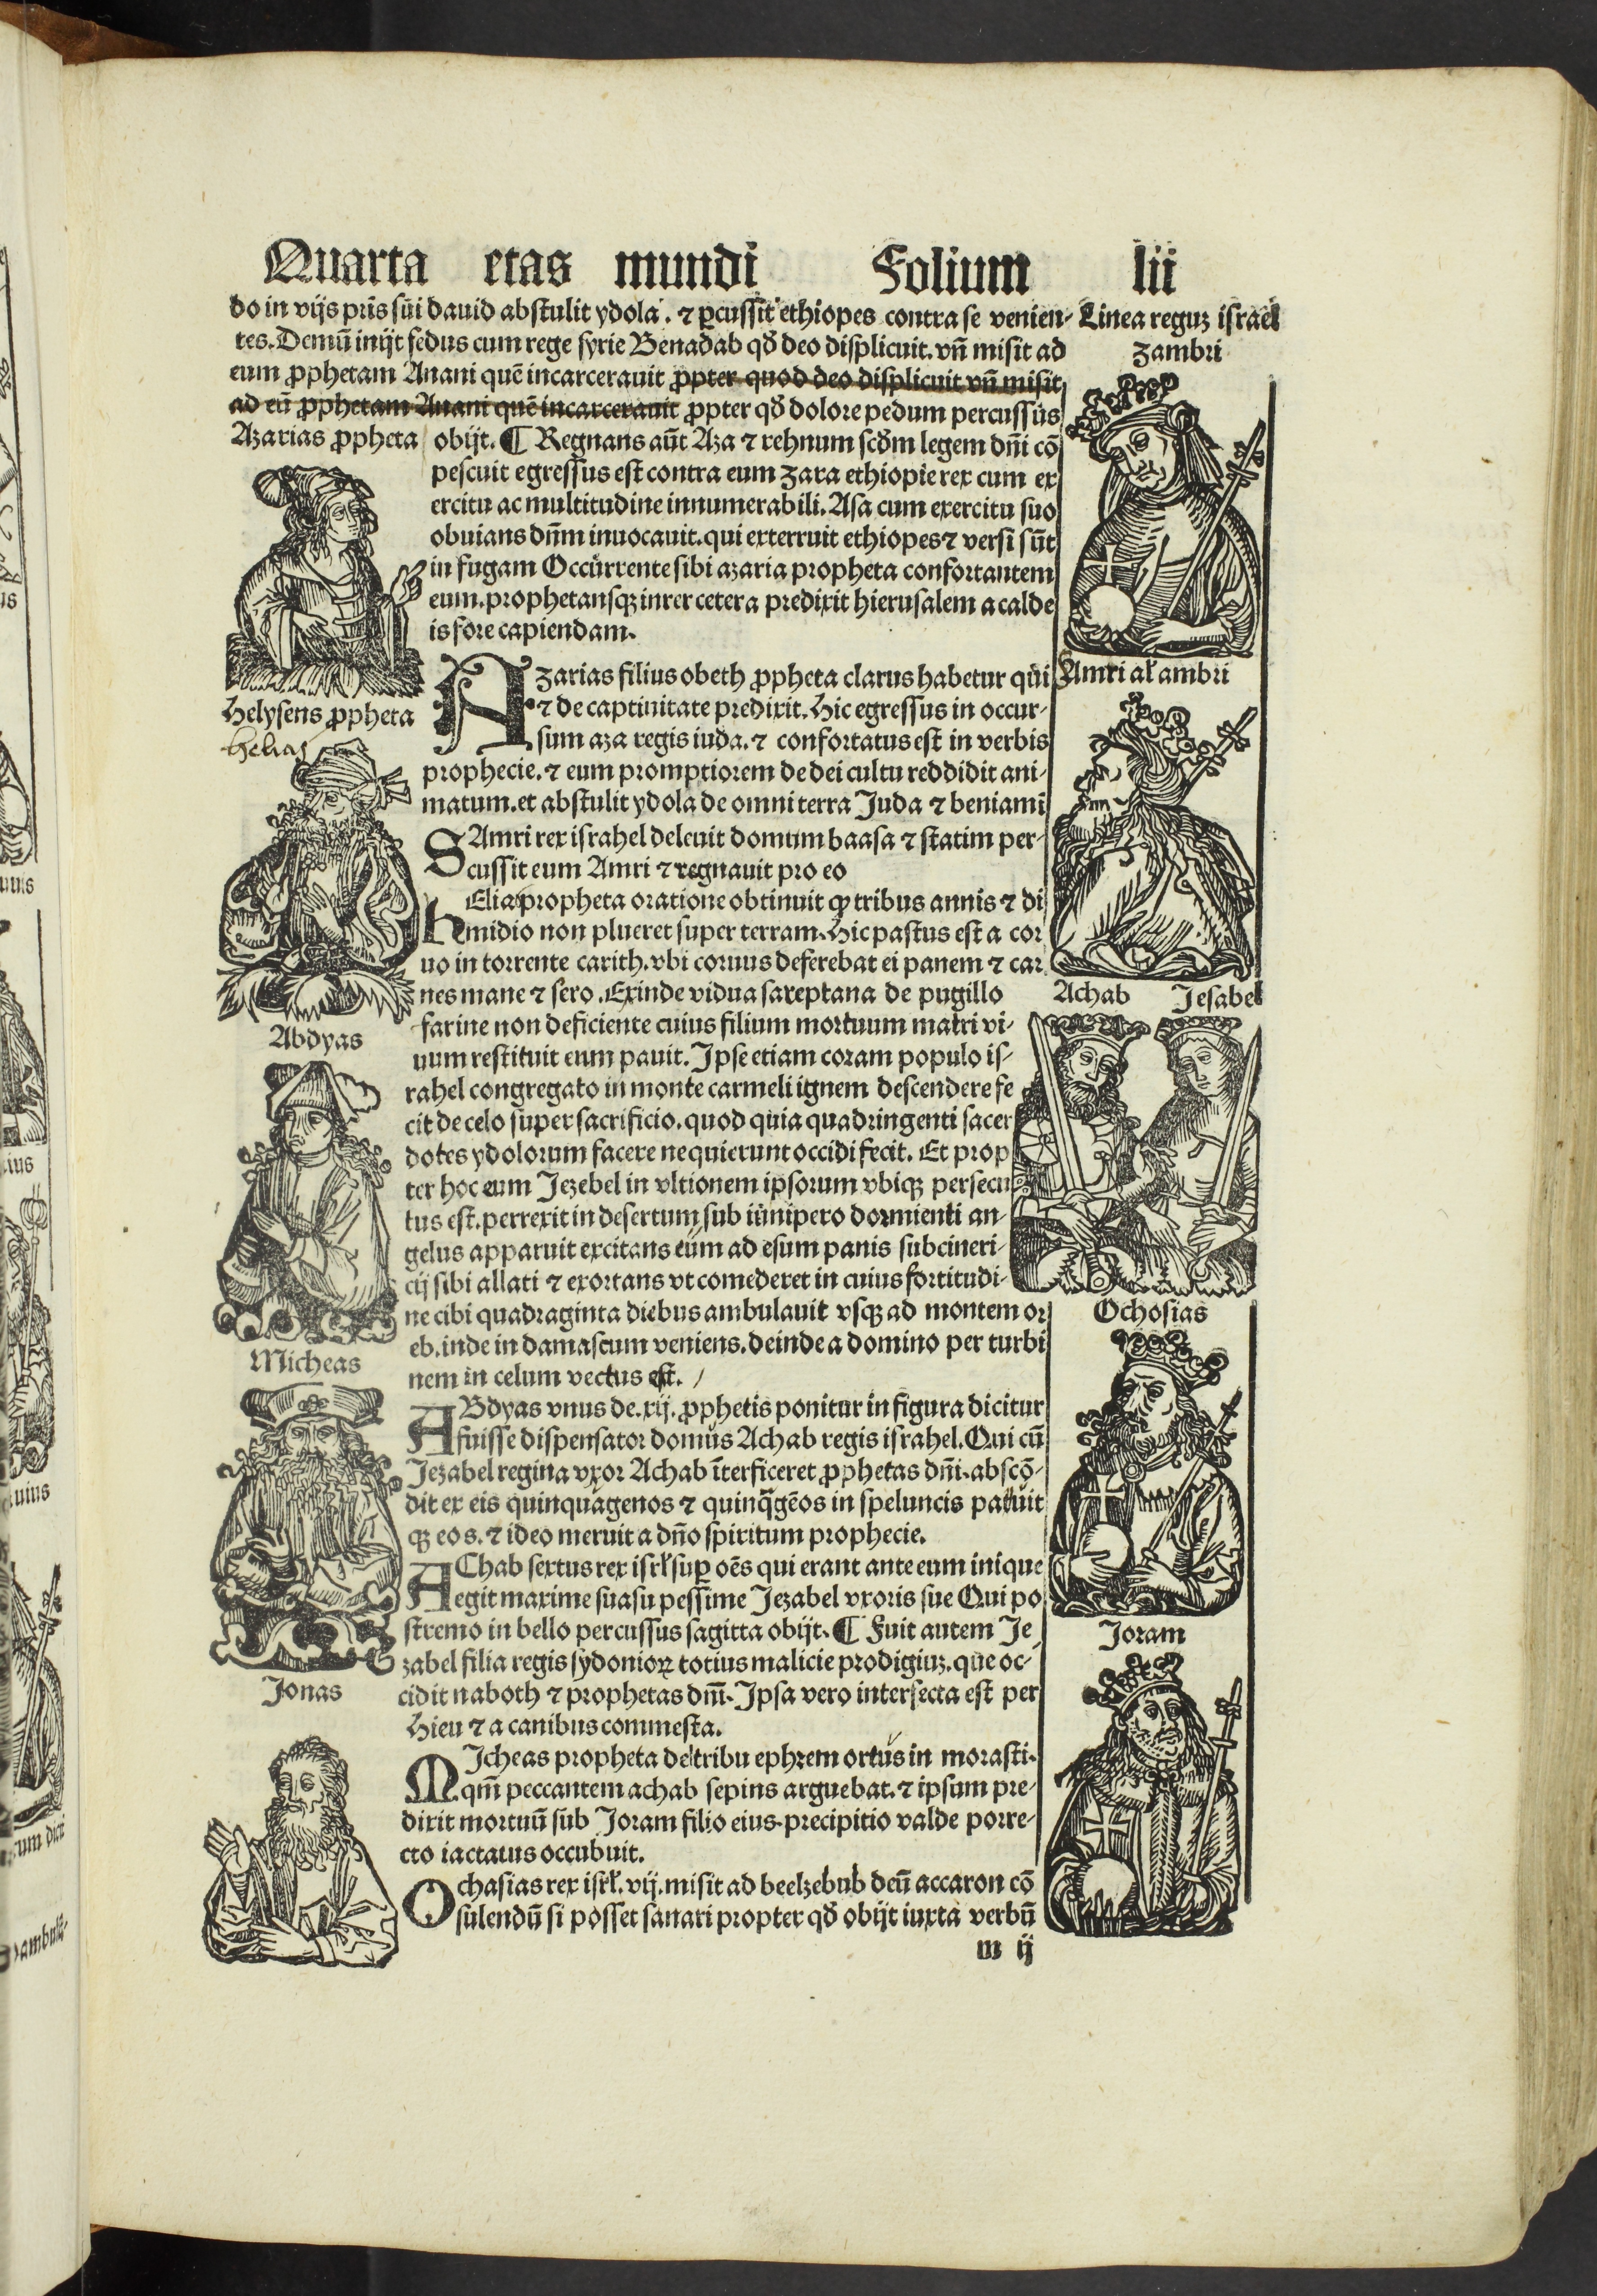 Quarta etas mundi Folium lii
do in vijs pr̄is sui dauid abstulit ydola. ⁊ ꝑcussit ethiopes contra se venien-
tes. Demū inijt fedus cum rege syrie Benadab qð deo displicuit. vn̄ misit ad
eum ꝓphetam Anani quē incarcerauit ꝓpter quod deo displicuit vn̄ misit
ad eū ꝓphetam Anani quē incarcerauit ꝓpter qð dolore pedum percussus
obijt. ¶ Regnans aūt Aza ⁊ rehnum scðm legem dn̄i cō
pescuit egressus est contra eum zara ethiopie rex cum ex
ercitu ac multitudine innumerabili. Asa cum exercitu suo
obuians dn̄m inuocauit. qui exterruit ethiopes ⁊ versi sūt
in fugam Occurrente sibi azaria propheta confortantem
eum. prophetansqꝫ inrer cetera predixit hierusalem a calde
is fore capiendam.
Azarias filius obeth ꝓpheta clarus habetur qui
⁊ de captiuitate predixit. Hic egressus in occur-
sum aza regis iuda. ⁊ confortatus est in verbis
prophecie. ⁊ eum promptiorem de dei cultu reddidit ani-
matum. et abstulit ydola de omni terra Juda ⁊ beniamī
SAmri rex israhel deleuit domum baasa ⁊ statim per-
cussit eum Amri ⁊ regnauit pro eo
hElia propheta oratione obtinuit ꝙ tribus annis ⁊ di
midio non plueret super terram. Hic pastus est a cor
uo in torrente carith. vbi coruus deferebat ei panem ⁊ car
nes mane ⁊ sero. Exinde vidua sareptana de pugillo
farine non deficiente cuius filium mortuum matri vi-
uum restituit eum pauit. Ipse etiam coram populo is-
rahel congregato in monte carmeli ignem descendere fe
cit de celo super sacrificio. quod quia quadringenti sacer
dotes ydolorum facere nequierunt occidi fecit. Et prop
ter hoc eum Jezebel in vltionem ipsorum vbiqꝫ persecu
tus est. perrexit in desertum sub iunipero dormienti an-
gelus apparuit excitans eum ad esum panis subcineri-
cij sibi allati ⁊ exortans vt comederet in cuius fortitudi-
ne cibi quadraginta diebus ambulauit vsqꝫ ad montem or
eb. inde in damascum veniens. deinde a domino per turbi
nem in celum vectus est.
ABdyas vnus de .xij. ꝓphetis ponitur in figura dicitur
fuisse dispensator domus Achab regis israhel. Qui cū
Jezabel regina vxor Achab īterficeret ꝓphetas dn̄i. abscō-
dit ex eis quinquagenos ⁊ quinq̄gēos in speluncis pauit
qꝫ eos. ⁊ ideo meruit a dn̄o spiritum prophecie.
AChab sextus rex isrł suꝑ oēs qui erant ante eum inique
egit maxime suasu pessime Jezabel vxoris sue Qui po
stremo in bello percussus sagitta obijt. ¶ Fuit autem Je
zabel filia regis sydonioꝝ totius malicie prodigiuꝫ. que oc-
cidit naboth ⁊ prophetas dn̄i. Ipsa vero intersecta est per
Hieu ⁊ a canibus commesta.
MIcheas propheta de tribu ephrem ortus in morasti.
qm̄ peccantem achab sepius arguebat. ⁊ ipsum pre-
dixit mortuū sub Joram filio eius. precipitio valde porre-
cto iactatus occubuit.
Ochasias rex isrł. vij. misit ad beelzebub deū accaron cō
sulendū si posset sanari propter qð obijt iuxta verbū
m ij
Azarias ꝓpheta
Helysens ꝓpheta
helias
Abdyas
Micheas
Jonas
Linea reguꝫ israel
Zambri
Amri ał ambri
Achab Jesabel
Ochosias
Joram